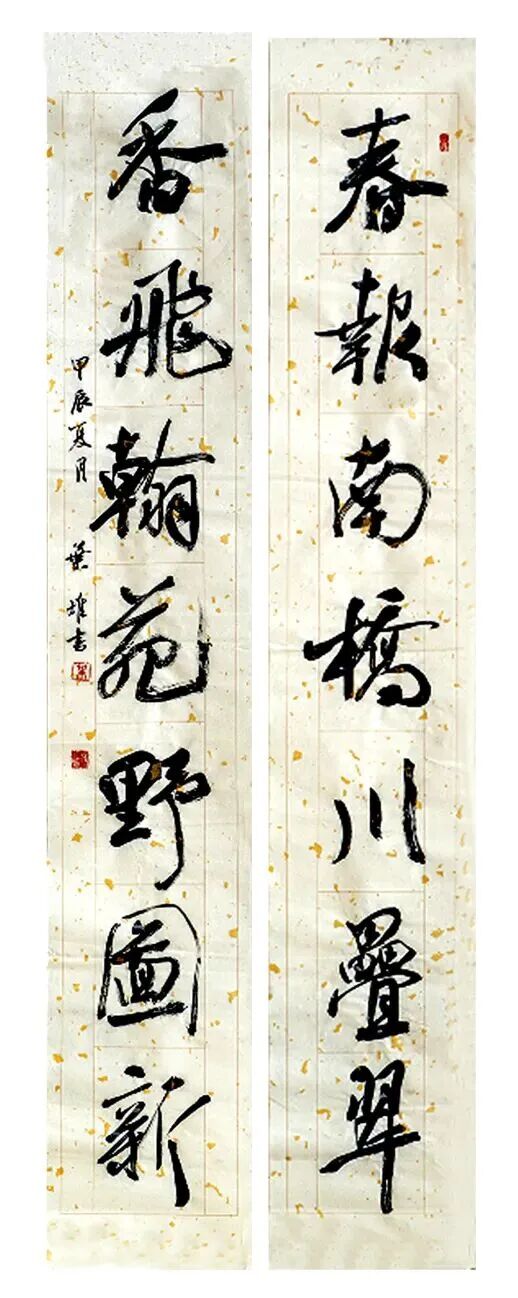 春報南橋川疊翠
香飛翰苑野圖新
甲辰夏月 葉雄書